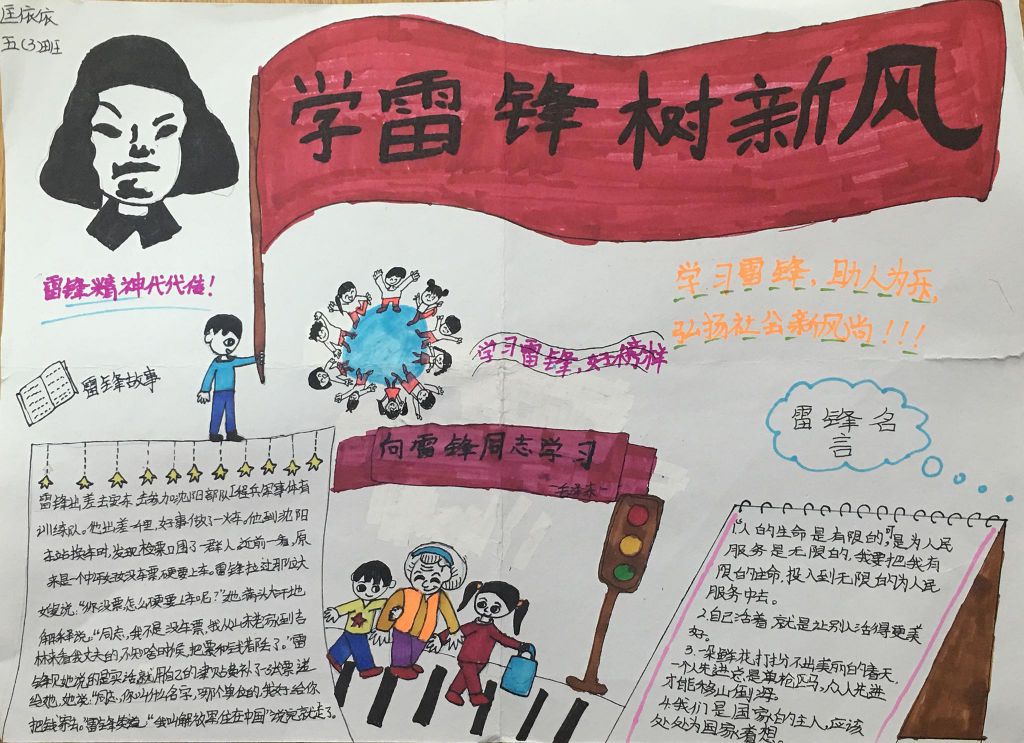 匡依依
五(3)班
学雷锋树新风
雷锋精神代代传!
学习雷锋,助人为乐,
弘扬社会新风尚!!!
学习雷锋,好榜样
雷锋故事
雷锋名
言
向雷锋同志学习
毛泽东
雷锋出差去安东,去参加沈阳部队工程兵军事体育
训练队。他出差一千里,好事做了一火车。他到沈阳
车站换车时,发现检票口围了一群人,近前一看,原
来是一个中年妇女没车票硬要上车。雷锋拉过那位大
嫂说:“你没票怎么硬要上车呢?”她满头大汗地
解释说:“同志,我不是没车票,我从山东老家到吉
林来看我丈夫的,不知啥时候,把票和钱都丢了。”雷
锋见她说的是实话,就用自己的津贴费补了一张票送
给她,她说:“同志,你叫什么名字,哪个单位的,我好给你
把钱寄去。”雷锋笑道:“我叫解放军住在中国”说完就走了。
1.人的生命是有限的,可是为人民
服务是无限的,我要把我有
限的生命,投入到无限的为人民
服务中去。
2.自己活着,就是让别人活得更美
好。
3.一朵鲜花打扮不出美丽的春天,
一个人先进总是单枪匹马,众人先进
才能移山倒海。
4.我们是国家的主人,应该
处处为国家着想。